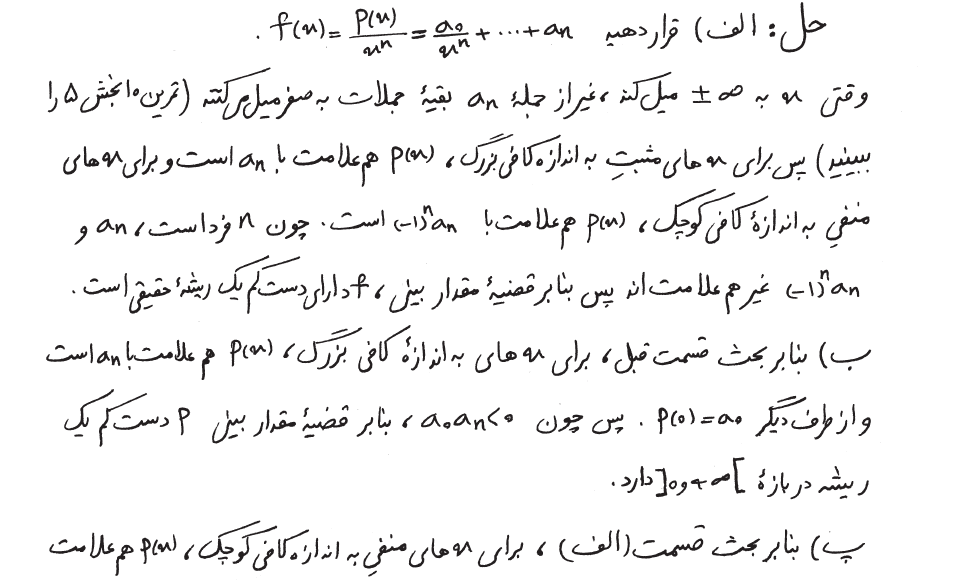 حل: الف) قرار دهید f(x)=P(x)/xⁿ=a₀/xⁿ+⋯+aₙ .
وقتی x به ±∞ میل کند، غیر از جملهٔ aₙ بقیهٔ جملات به صفر میل می‌کنند (تمرین ۱۰ بخش ۵ را
ببینید) پس برای x های مثبتِ به اندازه کافی بزرگ، P(x) هم علامت با aₙ است و برای x های
منفیِ به اندازهٔ کافی کوچک، P(x) هم علامت با (-1)ⁿaₙ است. چون n فرد است، aₙ و
(-1)ⁿaₙ غیر هم علامت اند پس بنابر قضیهٔ مقدار بینی، f دارای دست کم یک ریشهٔ حقیقی است.
ب) بنابر بحث قسمت قبل، برای x های به اندازهٔ کافی بزرگ، P(x) هم علامت با aₙ است
و از طرف دیگر P(0)=a₀ . پس چون a₀aₙ<0 ، بنابر قضیهٔ مقدار بینی P دست کم یک
ریشه در بازهٔ ]0,+∞[ دارد.
پ) بنابر بحث قسمت (الف)، برای x های منفیِ به اندازه کافی کوچک، P(x) هم علامت